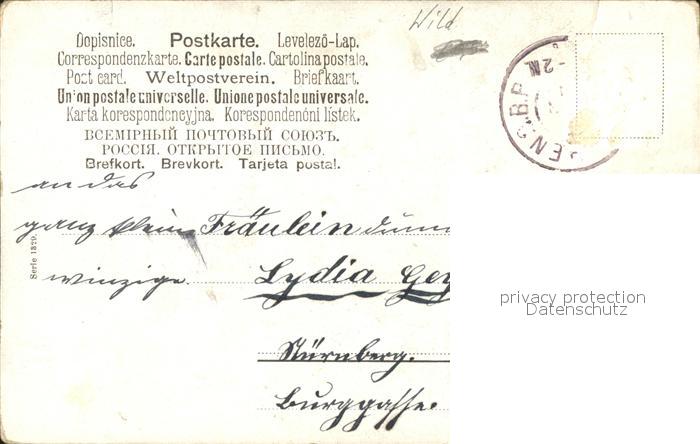 Wild
Dopisnice. Postkarte. Levelező-Lap.
Correspondenzkarte. Carte postale. Cartolina postale.
Post card. Weltpostverein. Briefkaart.
Union postale universelle. Unione postale universale.
Karta korespondencyjna. Korespondenčni listek.
ВСЕМІРНЫЙ ПОЧТОВЫЙ СОЮЗЪ.
РОССІЯ. ОТКРЫТОЕ ПИСЬМО.
Brefkort. Brevkort. Tarjeta postal.
-2N
B.P.
an das
ganz klein Fräulein
winzige. Lydia
Serie 1329.
privacy protection
Datenschutz
Nürnberg.
Burggasse.